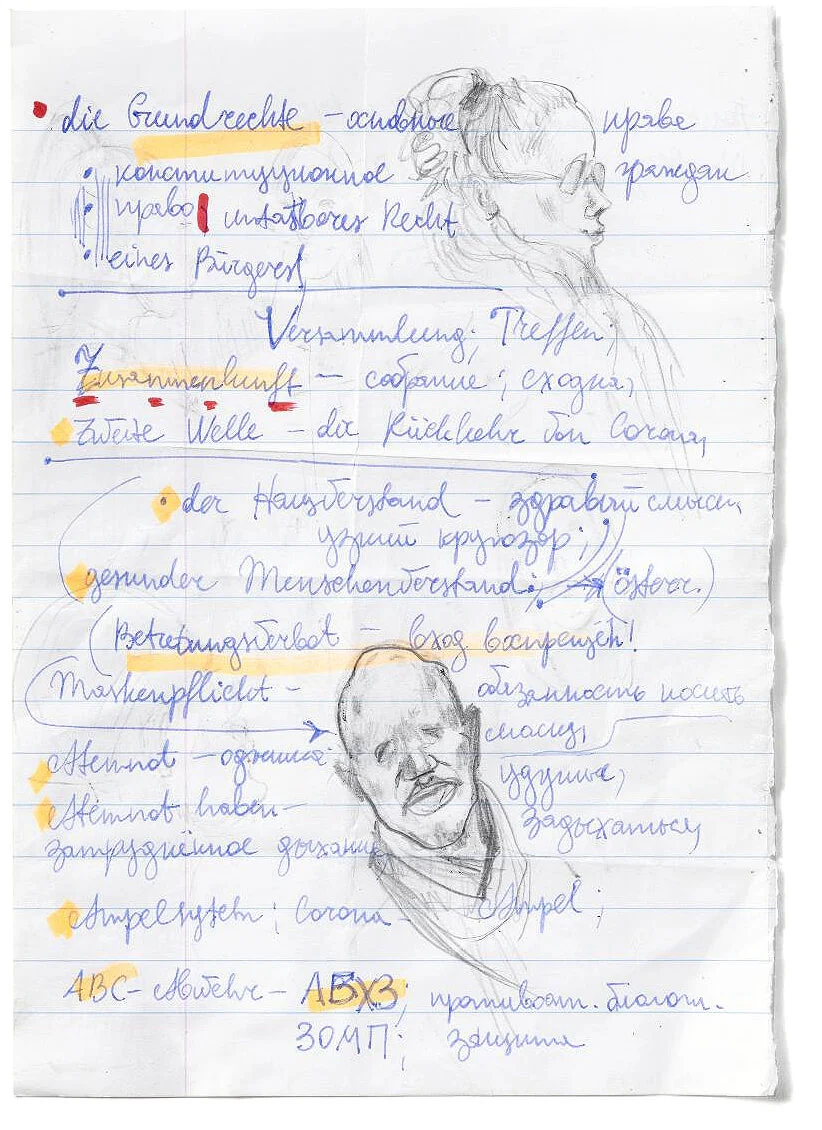 die Grundrechte – основные права
• конституционное граждан
• право | unfaßbares Recht
• eines Bürgers
Versammlung; Treffen;
Zusammenkunft – собрание; сходка;
Zweite Welle – die Rückkehr von Corona;
der Hausverstand – здравый смысл,
узкий кругозор;
gesunder Menschenverstand; → (österr.)
(Betretungsverbot – вход воспрещён!
Maskenpflicht – обязанность носить
маску;
Atemnot – одышка удушье,
Atemnot haben – задыхаться,
затруднённое дыхание
Ampelsystem; Corona-Ampel;
ABC-Abwehr – АБХЗ; противоат. биолог.
ЗОМП; защита